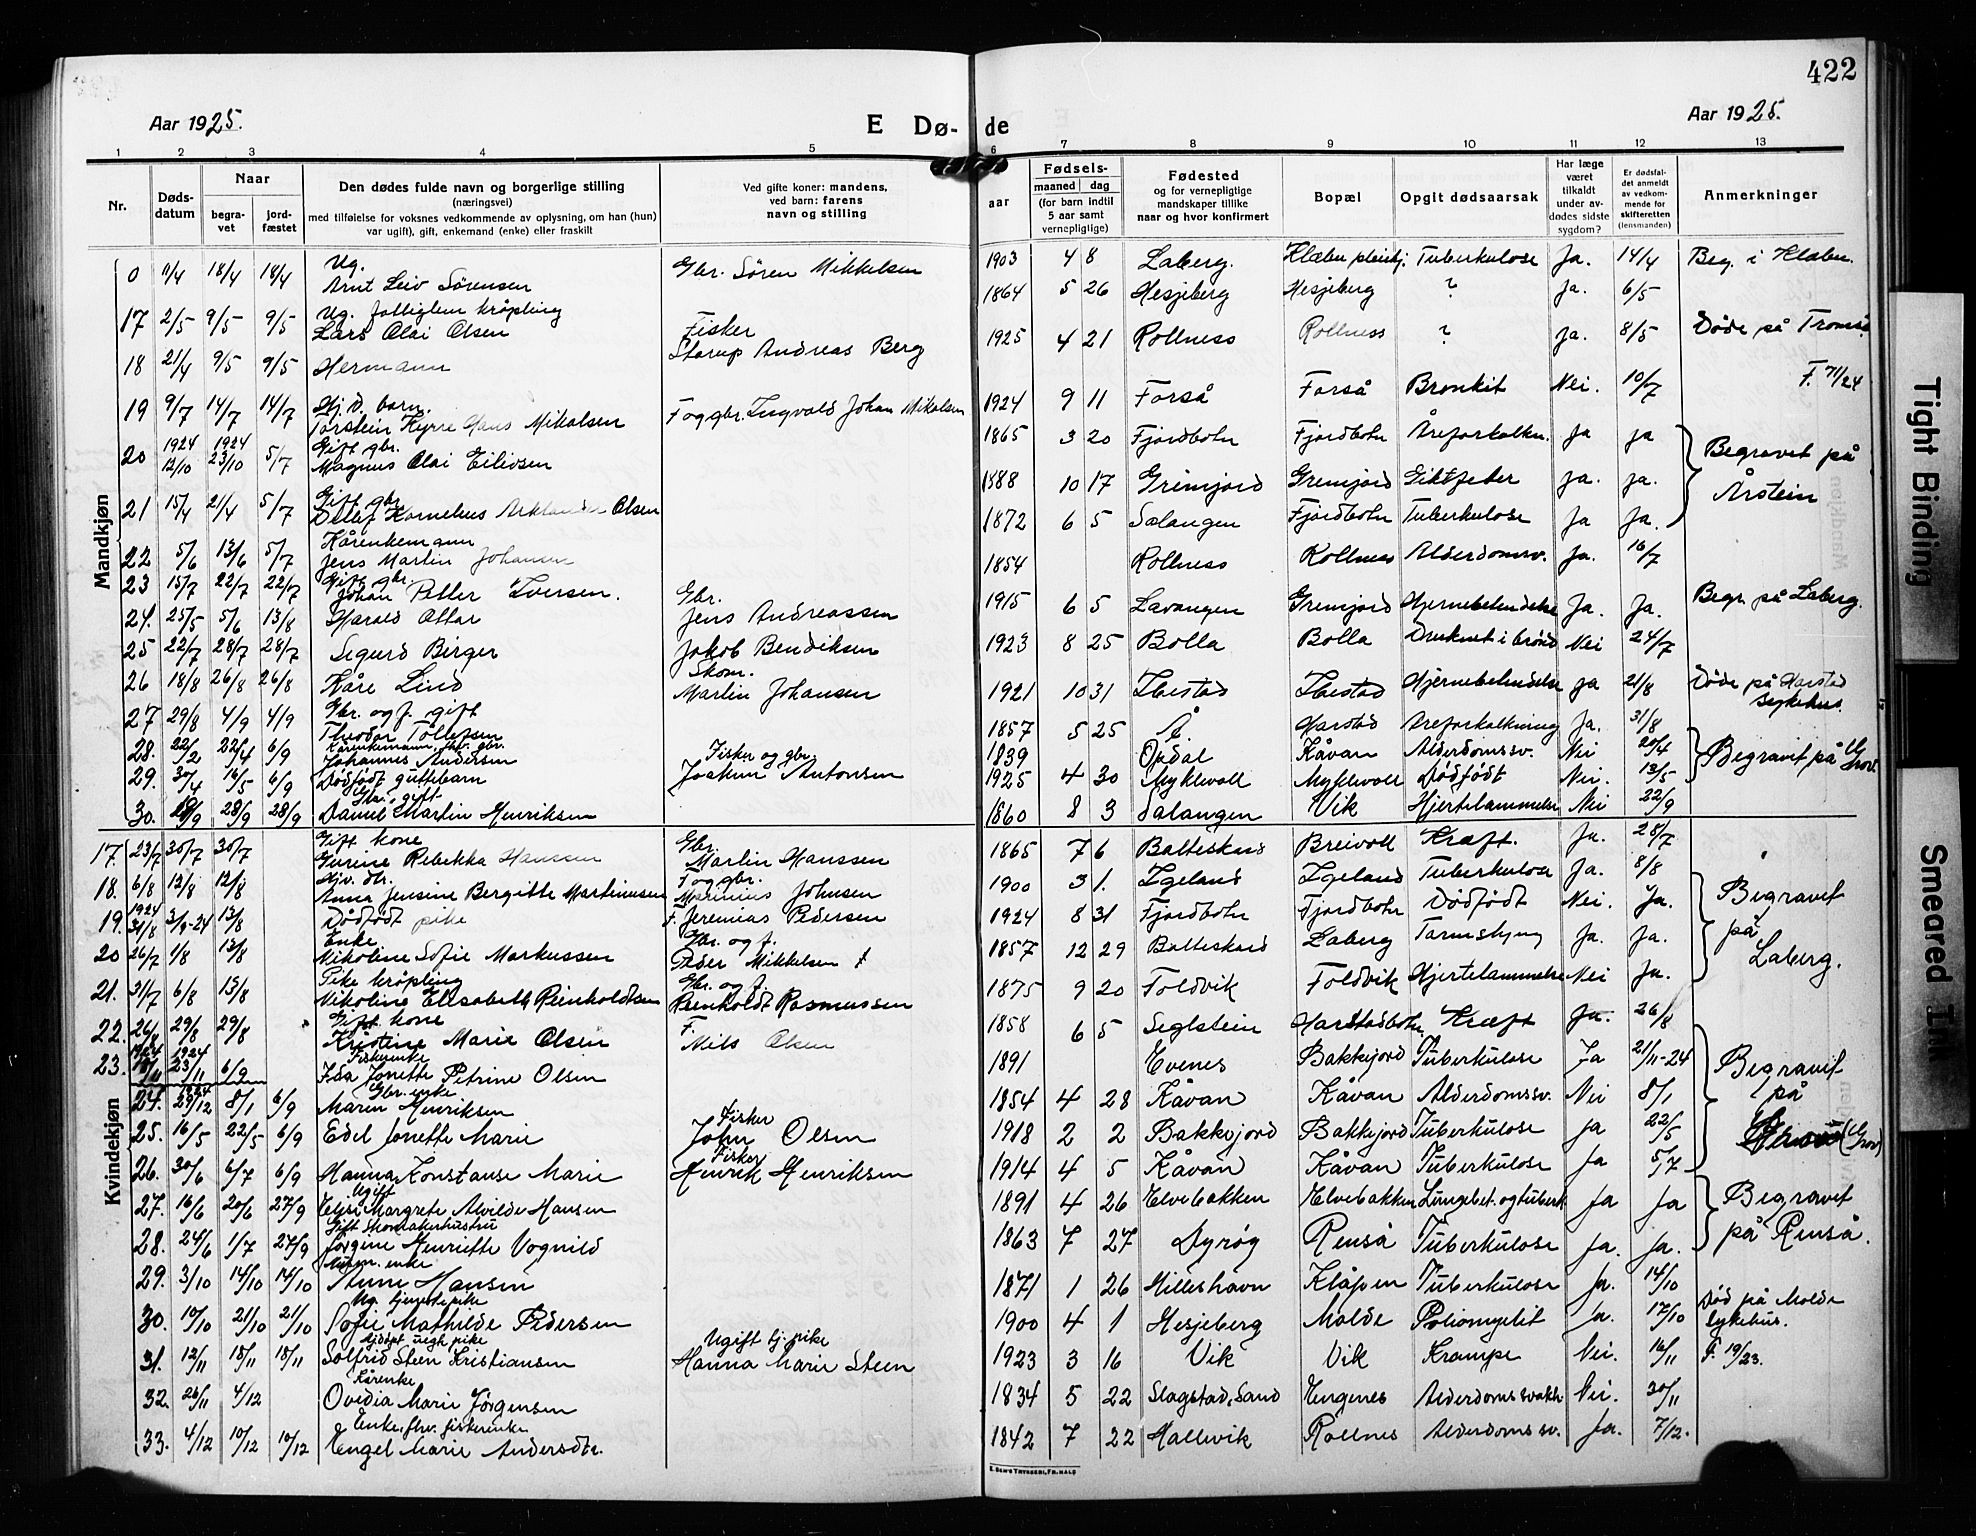 422
Aar 1925.
E Dø- de
Aar 1925.
1 2 3 4 5 6 7 8 9 10 11 12 13
Nr.
Døds-
datum
Naar
begra-
vet
jord-
fæstet
Den dødes fulde navn og borgerlige stilling
(næringsvei)
med tilføielse for voksnes vedkommende av oplysning, om han (hun)
var ugift), gift, enkemand (enke) eller fraskilt
Ved gifte koner: mandens,
ved barn: farens
navn og stilling
Fødsels-
aar
maaned
dag
(for barn indtil
5 aar samt
vernepligtige)
Fødested
og for vernepligtige
mandskaper tillike
naar og hvor konfirmert
Bopæl
Opgit dødsaarsak
Har læge
været
tilkaldt
under av-
dødes sidste
sygdom?
Er dødsfal-
det anmeldt
av vedkom-
mende for
skifteretten
(lensmanden)
Anmerkninger
Mandkjøn
0 11/4 18/4 18/4 Ug. Arnt Leiv Sørensen Gbr. Søren Mikkelsen 1903 4 8 Laberg. Tuberkulose Ja. 14/4 Beg. i Klæbu.
17 2/5 9/5 9/5 Ug. Lars Olai Olsen 1864 5 26 Hesjeberg Hesjeberg ? Ja. 6/5
18 21/4 9/5 9/5 Hermann Fisker Storup Andreas Berg 1925 4 21 Rollness Rollness ? Ja. 8/5 Døde på Tromsø
19 9/7 14/7 14/7 Torstein Kyrre Hans Mikalsen F og gbr. Ingvald Johan Mikalsen 1924 9 11 Forså Forså Bronkit Nei. 10/7 F. 71/24
20 1924 12/10 1924 23/10 5/7 Gift gbr. Magnus Olai Eilivsen 1865 3 20 Fjordbotn Fjordbotn Åreforkalkn. Ja Ja
Begravet på
Årstein
21 15/4 21/4 5/7 Gift gbr. Detlef Kornelius Olsen 1888 10 17 Grimjord Grimjord Giktfeber Ja. Ja.
22 5/6 13/6 5/7 Kårenkemann Jens Martin Johansen 1872 6 5 Salangen Fjordbotn Tuberkulose Ja Ja.
23 15/7 22/7 22/7 Gift gbr. Johan Petter Iversen. 1854 Rollness Rollness Alderdomsv. Ja. 16/7
24. 25/5 5/6 13/8 Harald Ottar Gbr. Jens Andreassen 1915 6 5 Lavangen Grimjord Hjernebetendelse Ja. Ja. Begr. på Laberg.
25 22/7 28/7 28/7 Sigurd Birger Jakob Bendiksen 1923 8 25 Bolla Bolla Druknet i brønd Nei 24/7
26 18/8 26/8 26/8 Kåre Lind Skom. Martin Johansen 1921 10 31 Ibestad Ibestad Hjernebetendelse Ja 21/8 Døde på Harstad sykehus.
27 29/8 4/9 4/9 Gbr. og f. gift Theodor Tollefsen 1857 5 25 Å. Harstad Åreforkalkning Ja. 31/8
28. 22/2 22/4 6/9 Kårenkemann, fhv. gbr. Johannes Andersen 1839 Opdal Kåvan Alderdomssv. Nei 20/4
Begravet på Grov.
29. 30/4 16/5 6/9 Dødfødt guttebarn Fisker og gbr. Joakim Antonsen 1925 4 30 Myklevoll Myklevoll Dødfødt Nei. 13/5
30. 19/9 28/9 28/9 Gbr., gift Daniel Martin Henriksen 1860 8 3 Salangen Vik Hjertelammelse Nei 22/9
Kvindekjøn
17. 23/7 30/7 30/7 Gift kone Gurine Rebekka Hanssen Gbr. Martin Hanssen 1865 7 6 Balteskard Breivoll Kræft. Ja. 25/7
18. 6/8 12/8 12/8 Hjv. dtr. Anna Jensine Bergitte Martinusen F og gbr. Marinius Johnsen 1900 3 1. Igeland Igeland Tuberkulose Ja. 8/8
19. 1924 31/8 3/9-24 13/8 Dødfødt pike F. Jeremias Pedersen 1924 8 31 Fjordbotn Fjordbotn Dødfødt Nei. Ja.
Begravet
på
Laberg.
20 26/7 1/8 13/8 Enke Nikoline Sofie Markussen Gbr. og f. Peder Mikkelsen † 1857 12 29 Balteskard Laberg Tarmslyng Ja. Ja.
21. 31/7 6/8 13/8 Pike krøpling Nikoline Elisabeth Reinholdtsen Gbr. og f. Reinholdt Rasmussen 1875 9 20 Foldvik Foldvik Hjertelammelse Nei Ja.
22. 26/8 29/8 29/8 Gift kone Kristine Marie Olsen F. Nils Olsen 1858 6 5 Seglstein Harstadbotn Kræft Ja. 26/8
23. 1924 1924 23/11 6/9 Fiskerenke Ida Jonette Petrine Olsen 1891 Evenes Bakkejord Tuberkulose Ja 21/11-24
Begravet
på
(Grov)
24. 1924 29/12 8/1 6/9 Gbr. enke Maren Henriksen 1854 4 28 Kåvan Kåvan Alderdomssv. Nei 8/1
25. 16/5 22/5 6/9 Edel Jonette Marie Fisker John Olsen 1918 2 2 Bakkejord Bakkejord Tuberkulose Ja 22/5
26. 30/6 6/7 6/9 Hanna Konstanse Marie Fisker Henrik Henriksen 1914 4 5 Kåvan Kåvan Tuberkulose Ja 5/7
27. 16/6 20/6 27/9 Ugift Elisi Margrete Alvilde Hansen 1891 4 26 Elvebakken Elvebakken Lungebet. og tuberk. Ja Ja
Begravet
på Renså.
28. 24/6 1/7 27/9 Gift skomakerhustru Jørgine Henriette Vognild 1863 7 27 Dyrøy Renså Tuberkulose Ja. Ja.
29. 3/10 14/10 14/10 enke Anne Hansen 1871 1 26 Hilleshavn Klåpen Tuberkulose Ja. 14/10
30. 10/10 21/10 21/10 Ug. tjenestepike Sofie Mathilde Pedersen 1900 4 1 Hesjeberg Molde Poliomyelit Ja. 17/10 Død på Molde sykehus.
31. 12/11 18/11 18/11 Hjdøpt uegh. pike Solfrid Steen Kristiansen Ugift tj. pike Hanna Marie Steen 1923 3 16 Vik Vik Krampe Nei. 16/11 F. 19/23.
32. 26/11 4/12 Kårenke Ovedia Marie Jørgensen 1834 5 22 Slagstad, Sand Engenes Alderdomssvakh. Nei. 30/11
33. 4/12 10/12 10/12 Enke, fhv. fiskerenke Engel Marie Andersdtr. 1842 7 22 Hallvik Rollnes Alderdomssv. Ja. 7/12.
E. SEM'S TRYKKERI, FR.HALD
Tight Binding
Smeared Ink